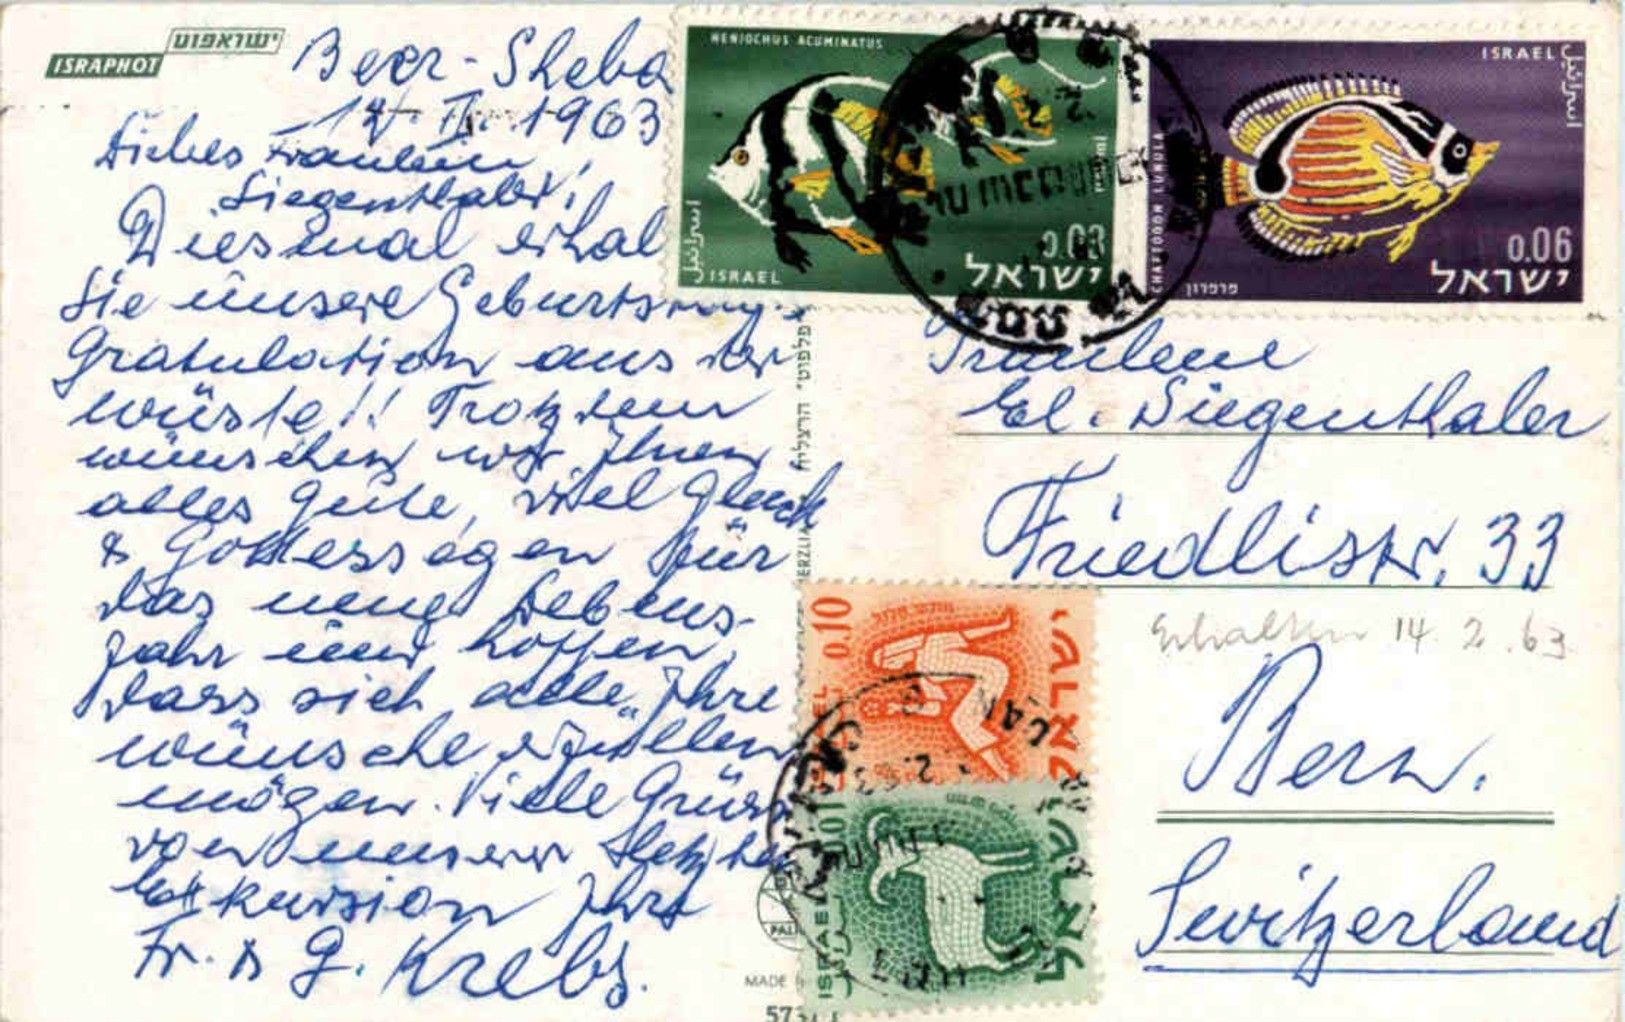 ISRAPHOT ישראפוט
Beer-Sheba
Liebes Fräulein
Siegenthaler!
Diesmal erhal
Sie unsere Geburtstags
Gratulation aus der
Wüste!! Trotzdem
wünschen wir Ihnen
alles Gute, viel Glück
& Gottessegen für
das neue Lebens-
jahr und hoffen,
dass sich alle Ihre
Wünsche erfüllen
mögen. Viele Grüsse
von unserer letzten
Exkursion Ihre
Fr. & G. Krebs.
HENIOCHUS ACUMINATUS
0.08
ISRAEL ישראל
اسرائيل
ISRAEL
اسرائيل
CHAETODON LUNULA
פרפרון
0.06
ישראל
פלפוט" הרצליה
ERZLIA
Fräulein
El. Siegenthaler
Friedlistr. 33
Erhalten 14.2.63
Bern.
Switzerland
0.10
ישראל
0.01
ISRAEL
ישראל
PAL
MADE
573